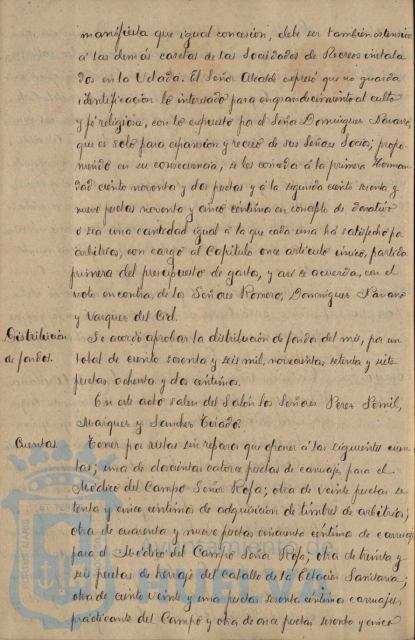 manifiesta que igual concesion, debe ser tambien ostensiva
á las demás casetas de las Sociedades de Recreos instala
das en la Velada. El Señor Alcalde expresó que no guarda
identificacion lo interesado para engrandecimiento al culto
y fé religiosa, con lo expuesto por el Señor Dominguez Navarro,
que es solo para expansion y recreo de sus Señores Socios; propo
niendo en su consecuencia, se les conceda á la primera Herman
dad ciento noventa y dos pesetas y á la segunda ciento sesenta y
nueve pesetas noventa y cinco centimos en concepto de donativo
ó sea una cantidad igual á la que cada una há satisfecho por
arbitrios, con cargo al Capitulo once articulo único, partida
primera del presupuesto de gastos, y asi se acuerda, con el
voto en contra, de los Señores Romero, Dominguez Navarro
y Vazquez del Cid.
Distribución
de fondos.
Se acordó aprobar la distribución de fondos del mes, por un
total de ciento sesenta y seis mil, novecientas, setenta y siete
pesetas ochenta y dos centimos.
En este acto salen del Salón los Señores Perez Pernil,
Marquez y Sanchez
Cuentas
por vistas sin reparos que oponer á las siguientes cuen
tas; una de doscientas catorce pesetas de carruaje para el
Médico del Campo Señor Rofa; otra de veinte pesetas se
tenta y cinco centimos de adquisicion de timbres de arbitrios;
otra de cuarenta y nueve pesetas cincuenta centimos de carruaje
para el Medico del Campo Señor Rofa; otra de treinta y
seis pesetas de herraje del caballo de la Estacion Sanitaria;
otra de ciento veinte y una pesetas sesenta centimos carruajes
practicante del Campo y otra de once pesetas sesenta y cinco